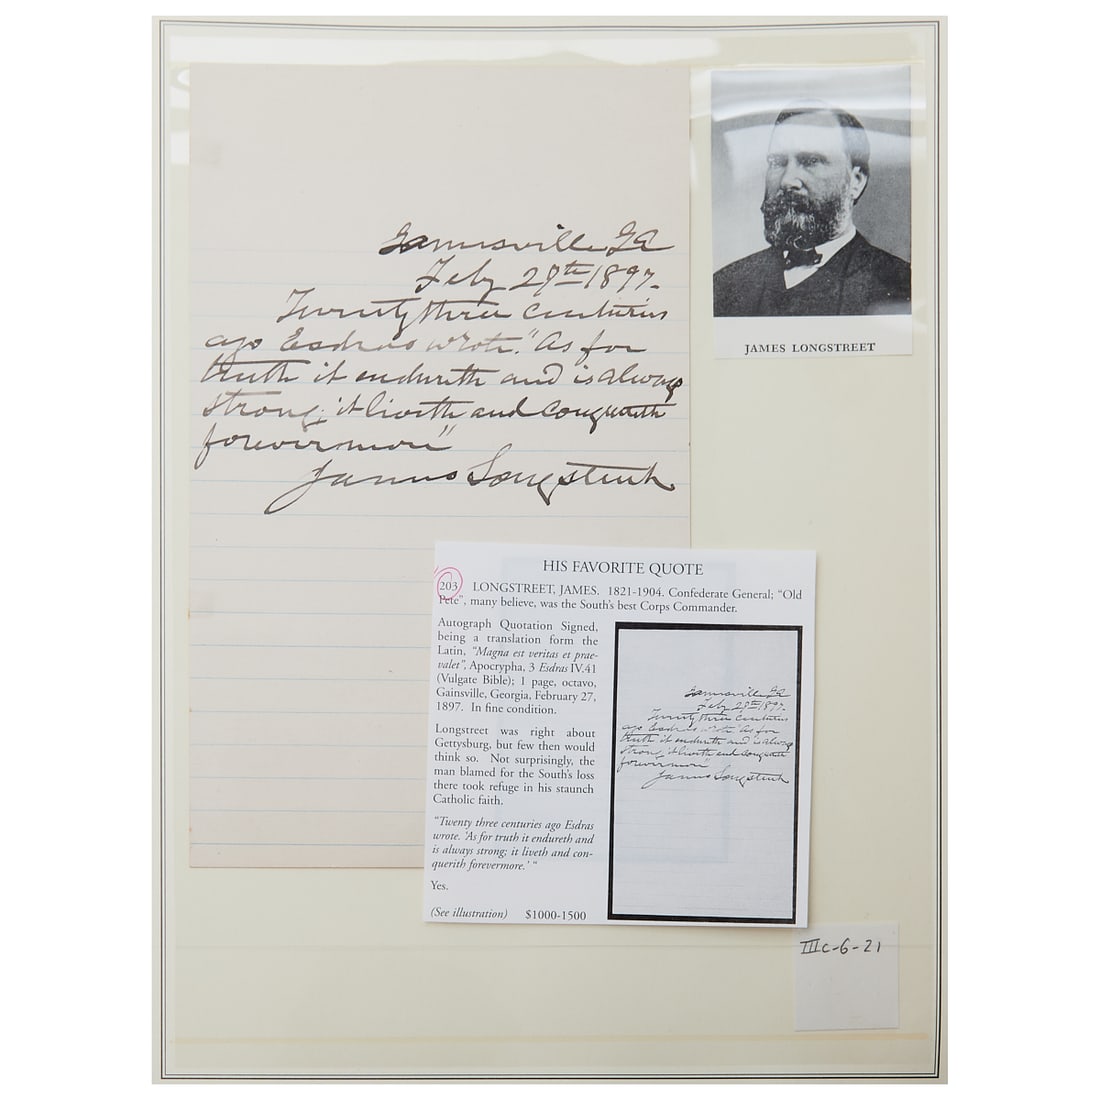 Gainesville Ga
Feby 27th 1897.
Twenty three centuries
ago Esdras wrote. "As for
truth it endureth and is always
strong; it liveth and conquereth
forevermore"
James Longstreet
JAMES LONGSTREET
HIS FAVORITE QUOTE
203 LONGSTREET, JAMES. 1821-1904. Confederate General; "Old
Pete", many believe, was the South's best Corps Commander.
Autograph Quotation Signed,
being a translation form the
Latin, "Magna est veritas et prae-
valet", Apocrypha, 3 Esdras IV.41
(Vulgate Bible); 1 page, octavo,
Gainsville, Georgia, February 27,
1897. In fine condition.
Longstreet was right about
Gettysburg, but few then would
think so. Not surprisingly, the
man blamed for the South's loss
there took refuge in his staunch
Catholic faith.
"Twenty three centuries ago Esdras
wrote. 'As for truth it endureth and
is always strong; it liveth and con-
querith forevermore.' "
Yes.
(See illustration) $1000-1500
Gainesville Ga
Feby 27th 1897.
Twenty three centuries
ago Esdras wrote. "As for
truth it endureth and is always
strong; it liveth and conquereth
forevermore"
James Longstreet
IIIc-6-21